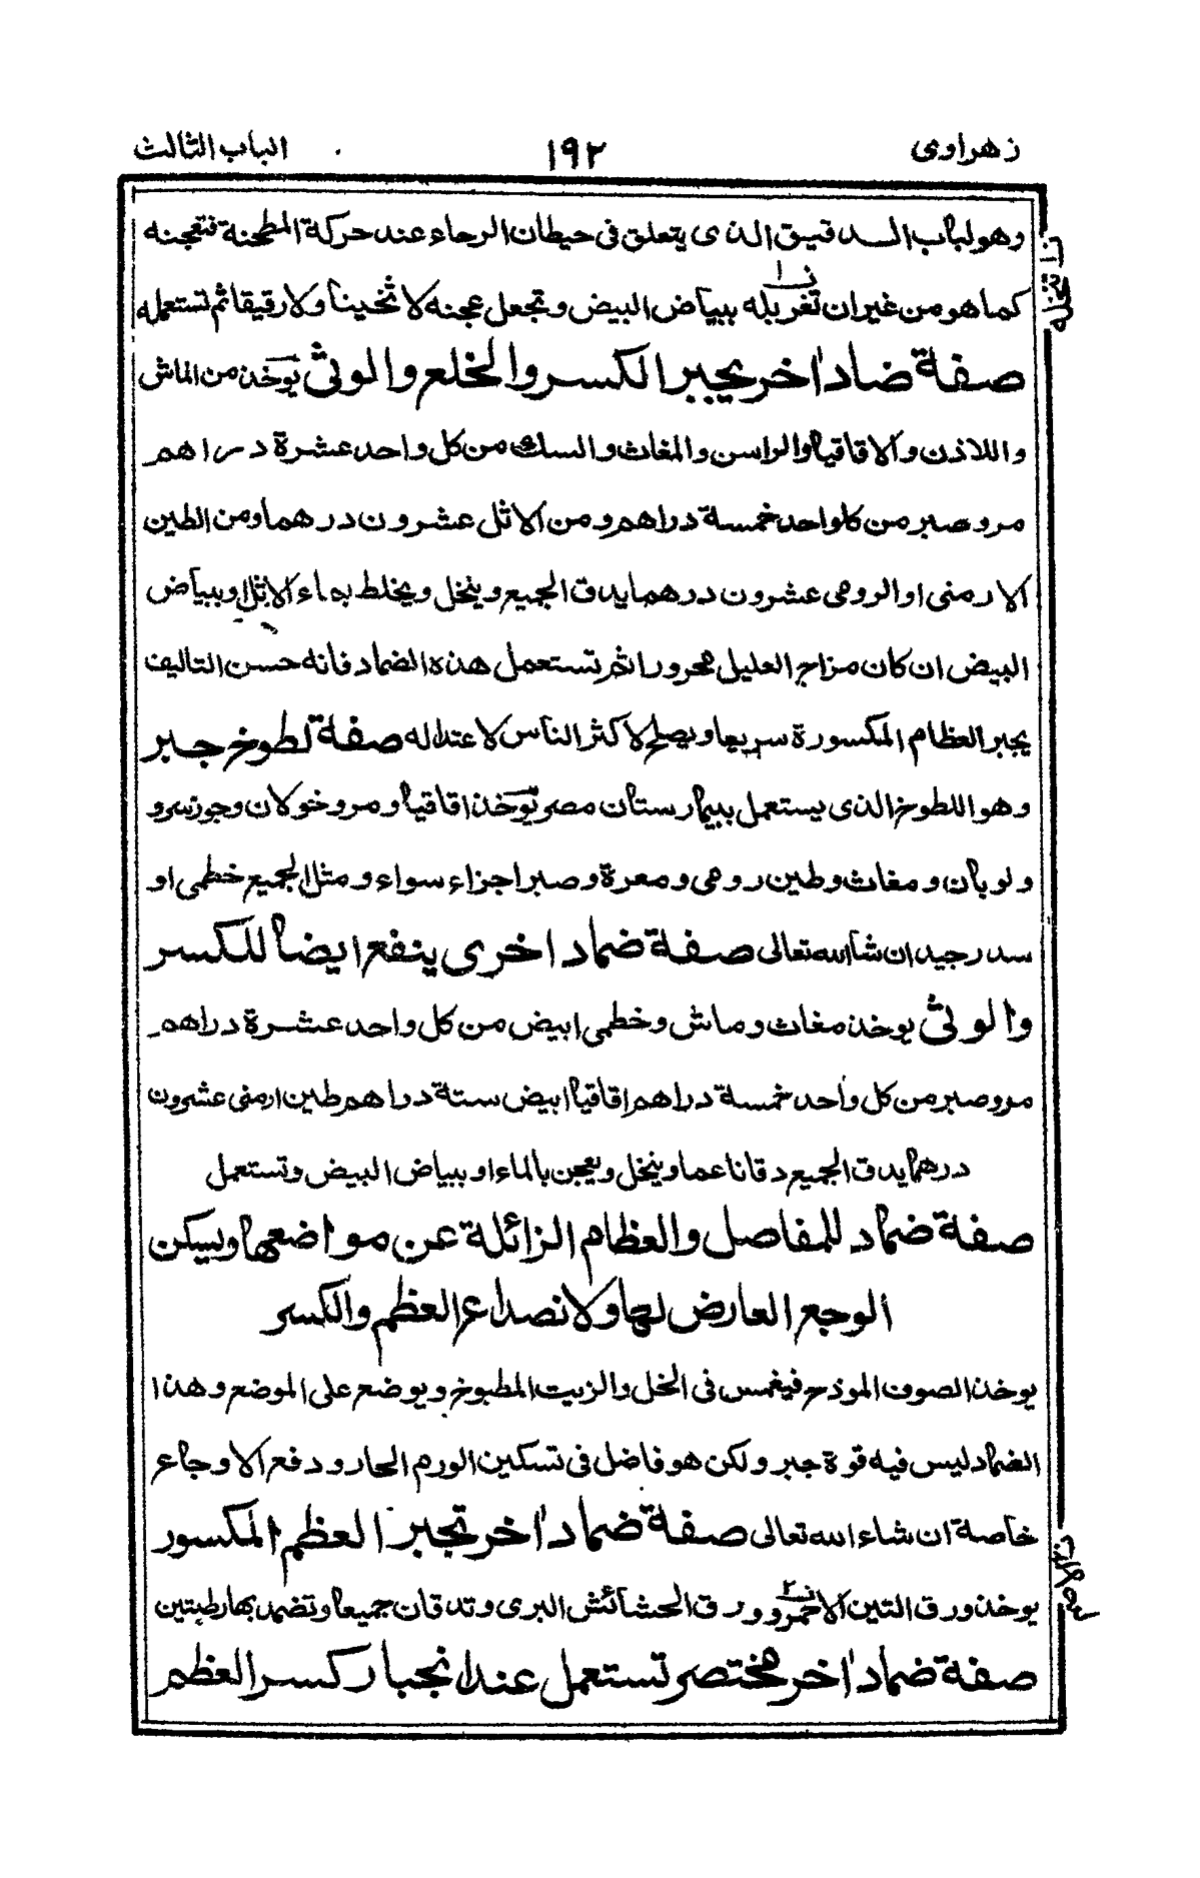 زهراوی ١٩٢ الباب الثالث
وهو لباب الدقيق الذی يتعلق فی حيطان الرحاء عند حركة المطحنة فتعجنه
كما هو من غير ان تغربله ببياض البيض وتجعل عجنه لا ثخينا ولا رقيقا ثم تستعمله
صفة ضماد اخر يجبر الكسر والخلع والوثی يوخذ من الماش
واللاذن والاقاقيا والراسن والمغاث والسك من كل واحد عشرة دراهم
مر وصبر من كلواحد خمسة دراهم ومن الاثل عشرون درهما ومن الطين
الارمنی او الرومی عشرون درهما يدق الجميع وينخل ويخلط بماء الاثل او ببياض
البيض ان كان مزاج العليل محرورا ثم تستعمل هذه الضماد فانه حسن التاليف
يجبر العظام المكسورة سريعا ويصلح لاكثر الناس لاعتداله صفة لطوخ جبر
وهو اللطوخ الذی يستعمل ببيمارستان مصر يوخذ اقاقيا ومر وخولان وجوز سرو
ولوبان ومغاث وطين رومی ومعرة وصبر اجزاء سواء ومثل الجميع خطمی او
سدر جيد ان شاالله تعالی صفة ضماد اخری ينفع ايضا للكسر
والوثی يوخذ مغاث وماش وخطمی ابيض من كل واحد عشرة دراهم
مر وصبر من كل واحد خمسة دراهم اقاقيا ابيض ستة دراهم طين ارمنی عشرون
درهما يدق الجميع دقا ناعما وينخل ويعجن بالماء او ببياض البيض وتستعمل
صفة ضماد للمفاصل والعظام الزائلة عن مواضعها ويسكن
الوجع العارض لها ولانصداع العظم والكسر
يوخذ الصوف الموذح فيغمس فی الخل والزيت المطبوخ ويوضع علی الموضع وهذا
الضماد ليس فيه قوة جبر ولكن هو فاضل فی تسكين الورم الحار ودفع الاوجاع
خاصة ان شاء الله تعالی صفة ضماد اخر تجبر العظم المكسور
يوخذ ورق التين الاحمر وورق الحشائش البری وتدقان جميعا وتضمد بها رطبتين
صفة ضماد اخر مختصر تستعمل عند انجبار كسر العظم